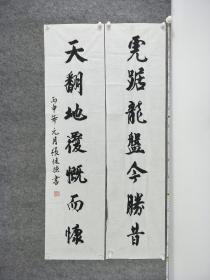 虎踞龍盤今勝昔
天翻地覆慨而慷
丙申年元月張健樁書